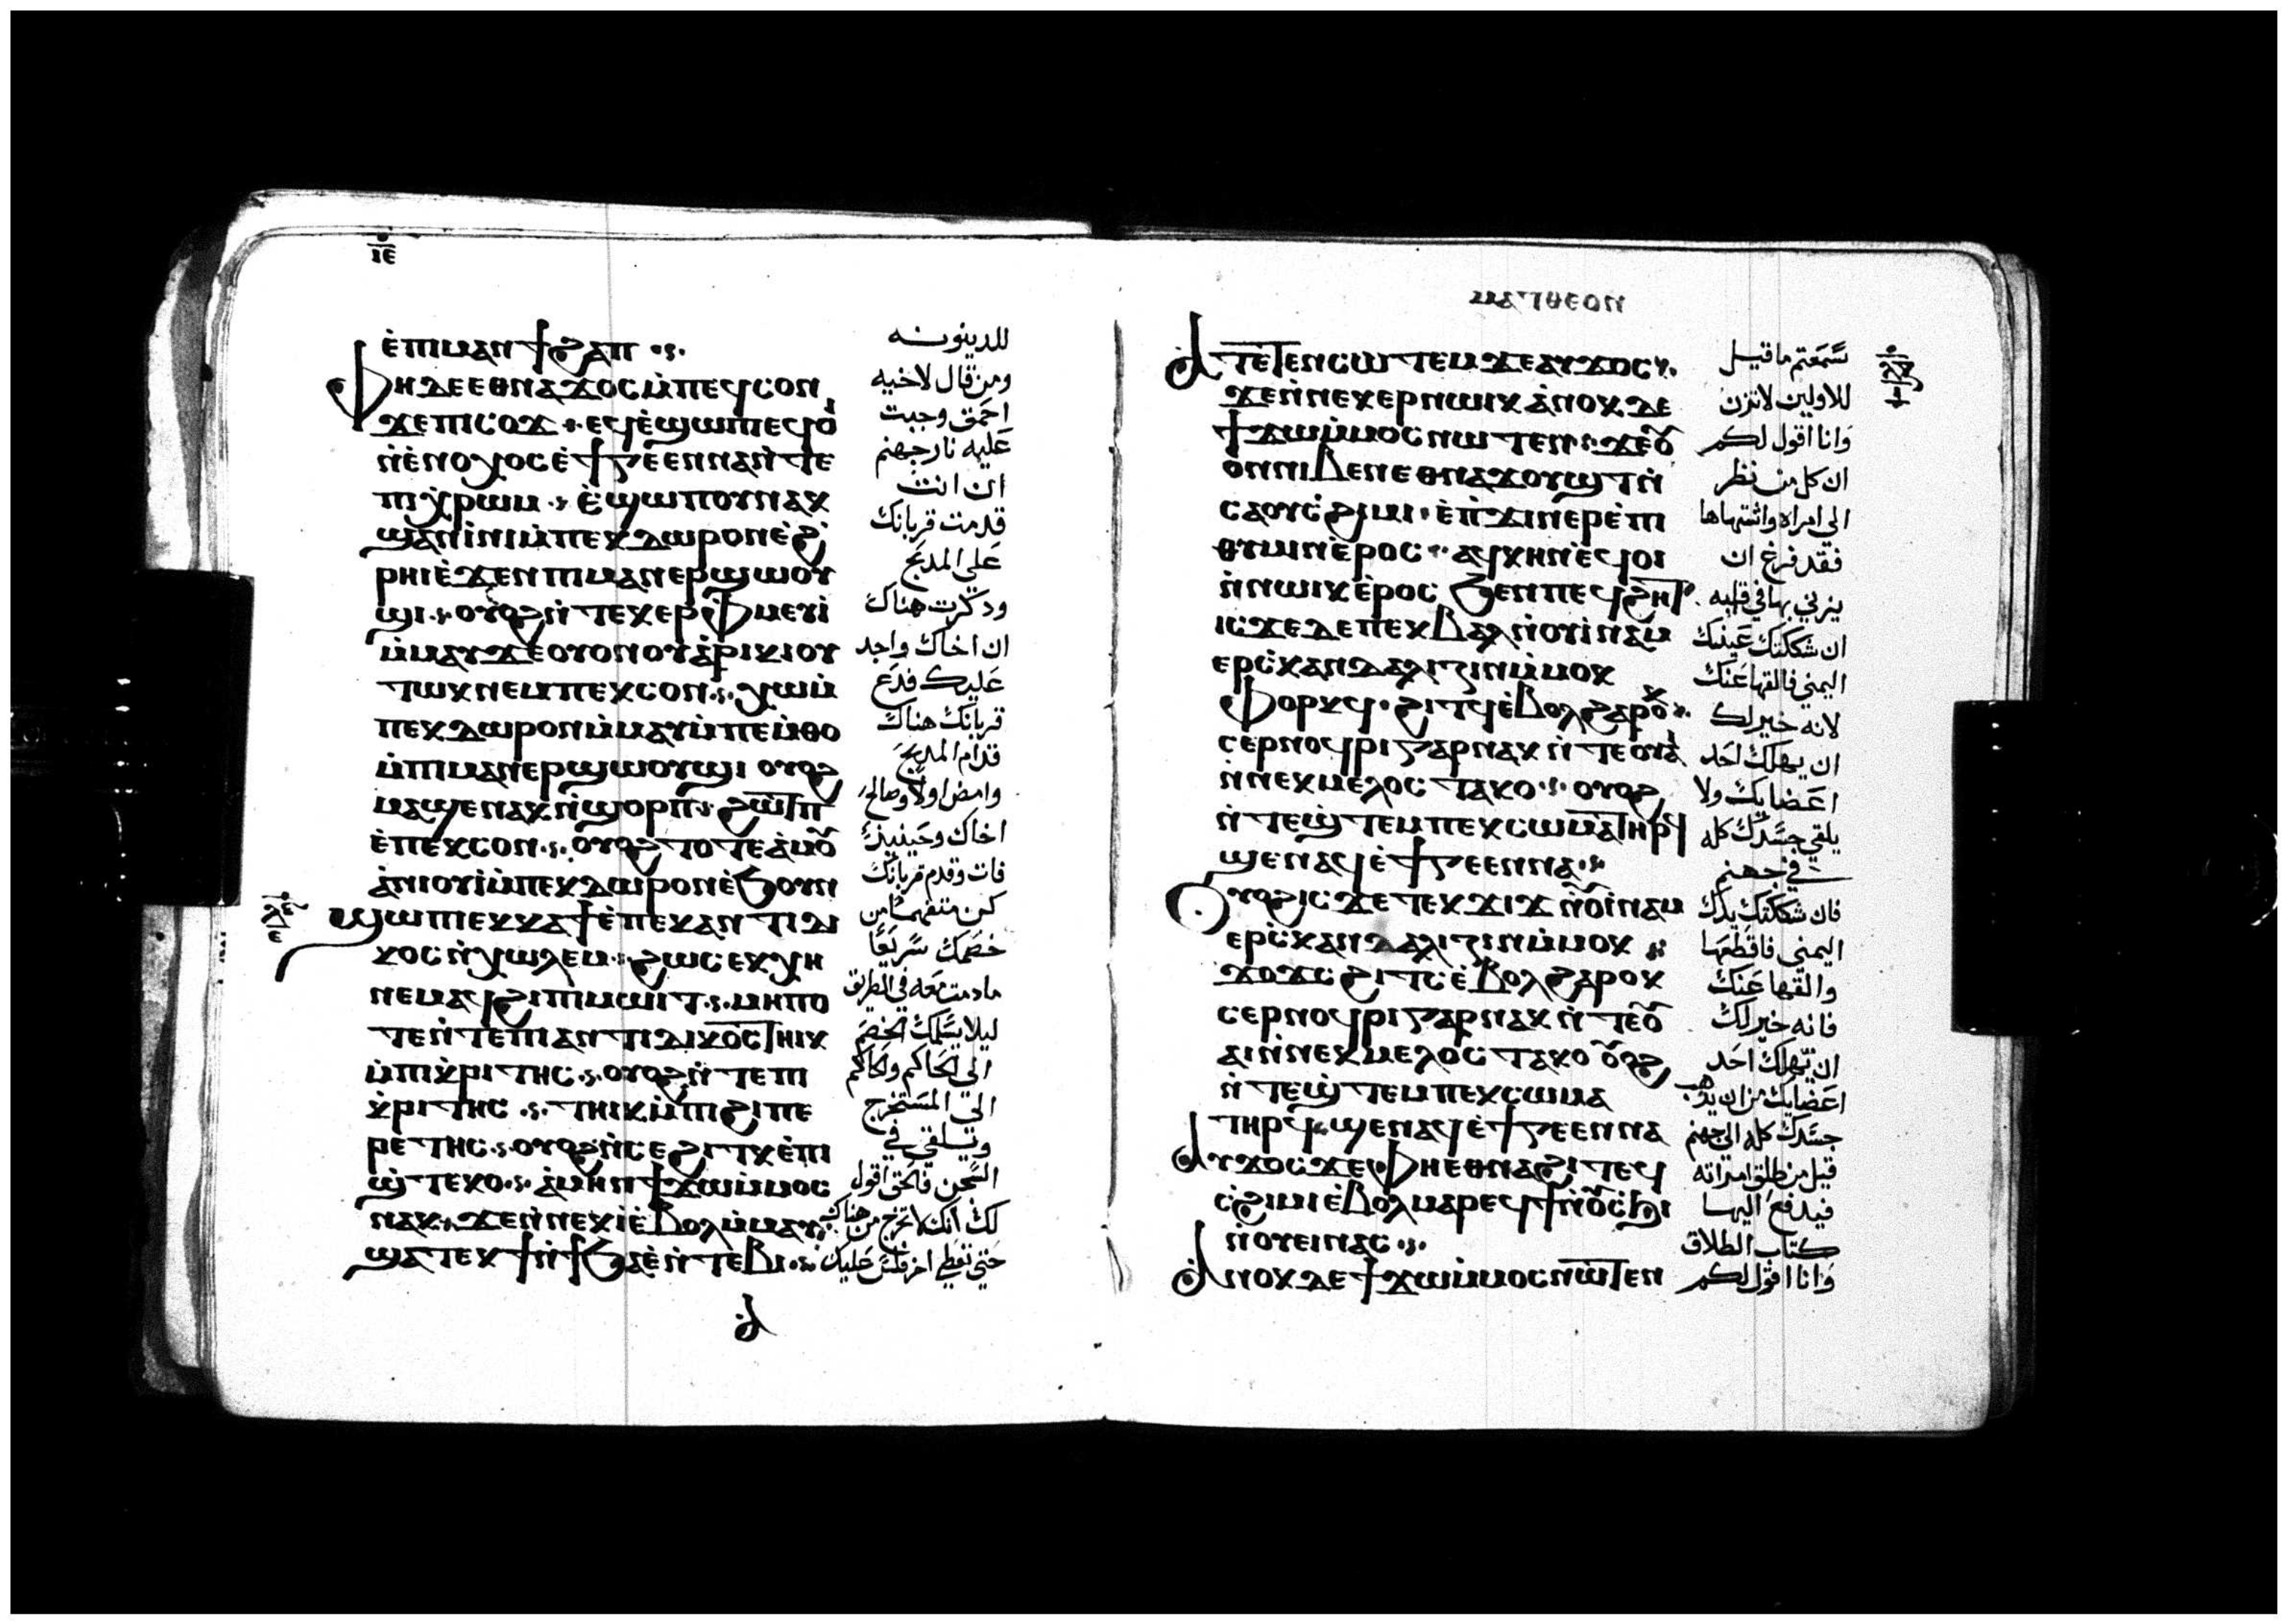 ⲓⲉ
ⲉ̀ⲡⲙⲁⲛϯϩⲁⲡ
للدينونه
ⲫⲏⲇⲉⲉⲑⲛⲁϫⲟⲥⲙ̀ⲡⲉϥⲥⲟⲛ
ومن قال لاخيه
ϫⲉⲡⲓⲥⲟϫ ⲉϥⲉ̀ϣⲱⲡⲉϥⲟ̀
احمق وجبت
ⲛ̀ⲉ̀ⲛⲟⲭⲟⲥⲉ̀ϯⲅⲉⲉⲛⲛⲁⲛ̀ⲧⲉ
عليه نار جهنم
ⲡⲓⲭ̀ⲣⲱⲙ ⲉ̀ϣⲱⲡⲟⲩⲛⲁⲕ
ان انت
ϣⲁⲛⲓ̀ⲛⲓⲙ̀ⲡⲉⲕⲇⲱⲣⲟⲛⲉ̀ϩ
قدمت قربانك
ⲣⲏⲓⲉ̀ϫⲉⲛⲡⲓⲙⲁⲛⲉⲣϣⲱⲟⲩ
علي المدبح
ϣⲓ ⲟⲩⲟϩⲛ̀ⲧⲉⲕⲉⲣⲫⲙⲉⲩⲓ̀
ودكرت هناك
ⲙ̀ⲙⲁⲩϫⲉⲟⲩⲟⲛⲟⲩⲁ̀ⲣⲓⲕⲓⲟⲩ
ان اخاك واجد
ⲧⲱⲕⲛⲉⲙⲡⲉⲕⲥⲟⲛ ⲭⲱⲙ̀
عليك فدع
ⲡⲉⲕⲇⲱⲣⲟⲛⲙ̀ⲙⲁⲩⲙ̀ⲡⲉⲙ̀ⲑⲟ
قربانك هناك
ⲙ̀ⲡⲓⲙⲁⲛⲉⲣϣⲱⲟⲩϣⲓ ⲟⲩⲟϩ
قدام المدبح
ⲙⲁϣⲉⲛⲁⲕⲛ̀ϣⲟⲣⲡ ϩⲱⲧⲡ
وامض اولا وصالح
ⲉ̀ⲡⲉⲕⲥⲟⲛ ⲟⲩⲟϩⲧⲟⲧⲉⲁ̀ⲙⲟⲩ
اخاك وحينيذ
ⲁ̀ⲛⲓⲟⲩⲓ̀ⲙ̀ⲡⲉⲕⲇⲱⲣⲟⲛⲉ̀ϧⲟⲩⲛ
فات وقدم قربانك
ϣⲱⲡⲉⲕⲕⲁϯⲉ̀ⲡⲉⲕⲁⲛⲧⲓⲇⲓ
كن متفهما من
ⲕⲟⲥⲛ̀ⲭⲱⲗⲉⲙ ϩⲱⲥⲉⲕⲭⲏ
خصمك سريعا
ⲛⲉⲙⲁϥϩⲓⲡⲓⲙⲱⲓⲧ ⲙⲏⲡⲟ
مادمت معه في الطريق
ⲧⲉⲛ̀ⲧⲉⲡⲓⲁⲛⲧⲓⲇⲓⲕⲟⲥⲧⲏⲓⲕ
ليلا يسلمك الخصم
ⲙ̀ⲡⲓⲕ̀ⲣⲓⲧⲏⲥ ⲟⲩⲟϩⲛ̀ⲧⲉⲡⲓ
الي الحاكم والحاكم
ⲕ̀ⲣⲓⲧⲏⲥ ⲧⲏⲓⲕⲙ̀ⲡⲓϩⲓⲡⲉ
الي المستخرج
ⲣⲉⲧⲏⲥ ⲟⲩⲟϩⲛ̀ⲥⲉϩⲓⲧⲕⲉ̀ⲡⲓ
وتلقي في
ϣ̀ⲧⲉⲕⲟ ⲁ̀ⲙⲏⲛϯϫⲱⲙ̀ⲙⲟⲥ
السجن فالحق اقول
ⲛⲁⲕ ϫⲉⲛ̀ⲛⲉⲕⲓ̀ⲉ̀ⲃⲟⲗⲙ̀ⲙⲁⲩ
لك انك لا تخرج من هناك
ϣⲁⲧⲉⲕϯⲛ̀ϯϧⲁⲉ̀ⲛ̀ⲧⲉⲃⲓ
حتي تعطي اخر فلس عليك
ⲙⲁⲧⲑⲉⲟⲛ
ⲁⲧⲉⲧⲉⲛⲥⲱⲧⲉⲙϫⲉⲁⲩϫⲟⲥ
سمعتم ما قيل
ϫⲉⲛ̀ⲛⲉⲕⲉⲣⲛⲱⲓⲕ ⲁ̀ⲛⲟⲕⲇⲉ
للاولين لا تزن
ϯϫⲱⲙ̀ⲙⲟⲥⲛⲱⲧⲉⲛ ϫⲉⲟⲩ
وانا اقول لكم
ⲟⲛⲛⲓⲃⲉⲛⲉⲑⲛⲁϫⲟⲩϣⲧⲛ̀
ان كل من نظر
ⲥⲁⲟⲩⲥ̀ϩⲓⲙⲓ ⲉ̀ⲡ̀ϫⲓⲛⲉⲣⲉ̀ⲡⲓ
الي امراه واشتهاها
ⲑⲩⲙⲓⲛⲉ̀ⲣⲟⲥ ⲁϥⲕⲏⲛⲉ̀ϥⲟⲓ
فقد فرغ ان
ⲛ̀ⲛⲱⲓⲕⲉ̀ⲣⲟⲥ ϧⲉⲛⲡⲉϥϩⲏⲧ
يزني بها في قلبه
ⲓⲥϫⲉⲇⲉⲡⲉⲕⲃⲁⲗⲛ̀ⲟⲩⲓ̀ⲛⲁⲙ
ان شككتك عينك
ⲉⲣⲥ̀ⲕⲁⲛⲇⲁⲗⲓⲍⲓⲛⲙ̀ⲙⲟⲕ
اليمني فالقها عنك
ⲫⲟⲣⲕϥ ϩⲓⲧϥⲉ̀ⲃⲟⲗϩⲁⲣⲟⲕ
لانه خير لك
ⲥⲉⲣⲛⲟϥⲣⲓⲅⲁⲣⲛⲁⲕ ⲛ̀ⲧⲉⲟⲩⲁⲓ
ان يهلك احد
ⲛ̀ⲛⲉⲕⲙⲉⲗⲟⲥ ⲧⲁⲕⲟ ⲟⲩⲟϩ
اعضايك ولا
ⲛ̀ⲧⲉϣ̀ⲧⲉⲙⲡⲉⲕⲥⲱⲙⲁⲧⲏⲣϥ
يلقي جسدك كله
ϣⲉⲛⲁϥⲉ̀ϯⲅⲉⲉⲛⲛⲁ
في جهنم
ⲟⲩⲟϩⲓⲥϫⲉⲧⲉⲕϫⲓϫ ⲛ̀ⲟⲩⲓ̀ⲛⲁⲙ
فان شككتك يدك
ⲉⲣⲥ̀ⲕⲁⲛⲇⲁⲗⲓⲍⲓⲛⲙ̀ⲙⲟⲕ
اليمني فاقطعها
ϫⲟϫⲥ ϩⲓⲧⲥⲉ̀ⲃⲟⲗ ϩⲁⲣⲟⲕ
والقها عنك
ⲥⲉⲣⲛⲟϥⲣⲓⲅⲁⲣⲛⲁⲕ ⲛ̀ⲧⲉⲟⲩ
فانه خير لك
ⲁⲓⲛ̀ⲛⲉⲕⲙⲉⲗⲟⲥ ⲧⲁⲕⲟ ⲟⲩⲟϩ
ان يهلك احد
ⲛ̀ⲧⲉϣ̀ⲧⲉⲙⲡⲉⲕⲥⲱⲙⲁ
اعضايك من ان يذهب
ⲧⲏⲣϥ ϣⲉⲛⲁϥⲉ̀ϯⲅⲉⲉⲛⲛⲁ
جسدك كله الي جهنم
ⲁⲩϫⲟⲥϫⲉⲫⲏⲉⲑⲛⲁϩⲓⲧⲉϥ
قيل من طلق امراته
ⲥ̀ϩⲓⲙⲓⲉ̀ⲃⲟⲗⲙⲁⲣⲉϥϯⲛ̀ⲟⲩⲥ̀ϧⲓ
فيدفع اليها
ⲛ̀ⲟⲩⲉⲓⲛⲁⲥ
كتاب الطلاق
ⲁⲛⲟⲕⲇⲉϯϫⲱⲙ̀ⲙⲟⲥⲛⲱⲧⲉⲛ
وانا اقول لكم